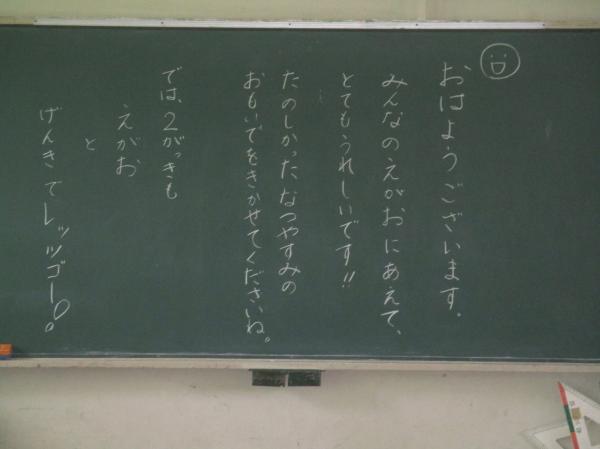 おはようございます。
みんなのえがおにあえて、
とてもうれしいです!!
たのしかったなつやすみの
おもいでをきかせてくださいね。
では、2がっきも
えがお
と
げんきでレッツゴー!